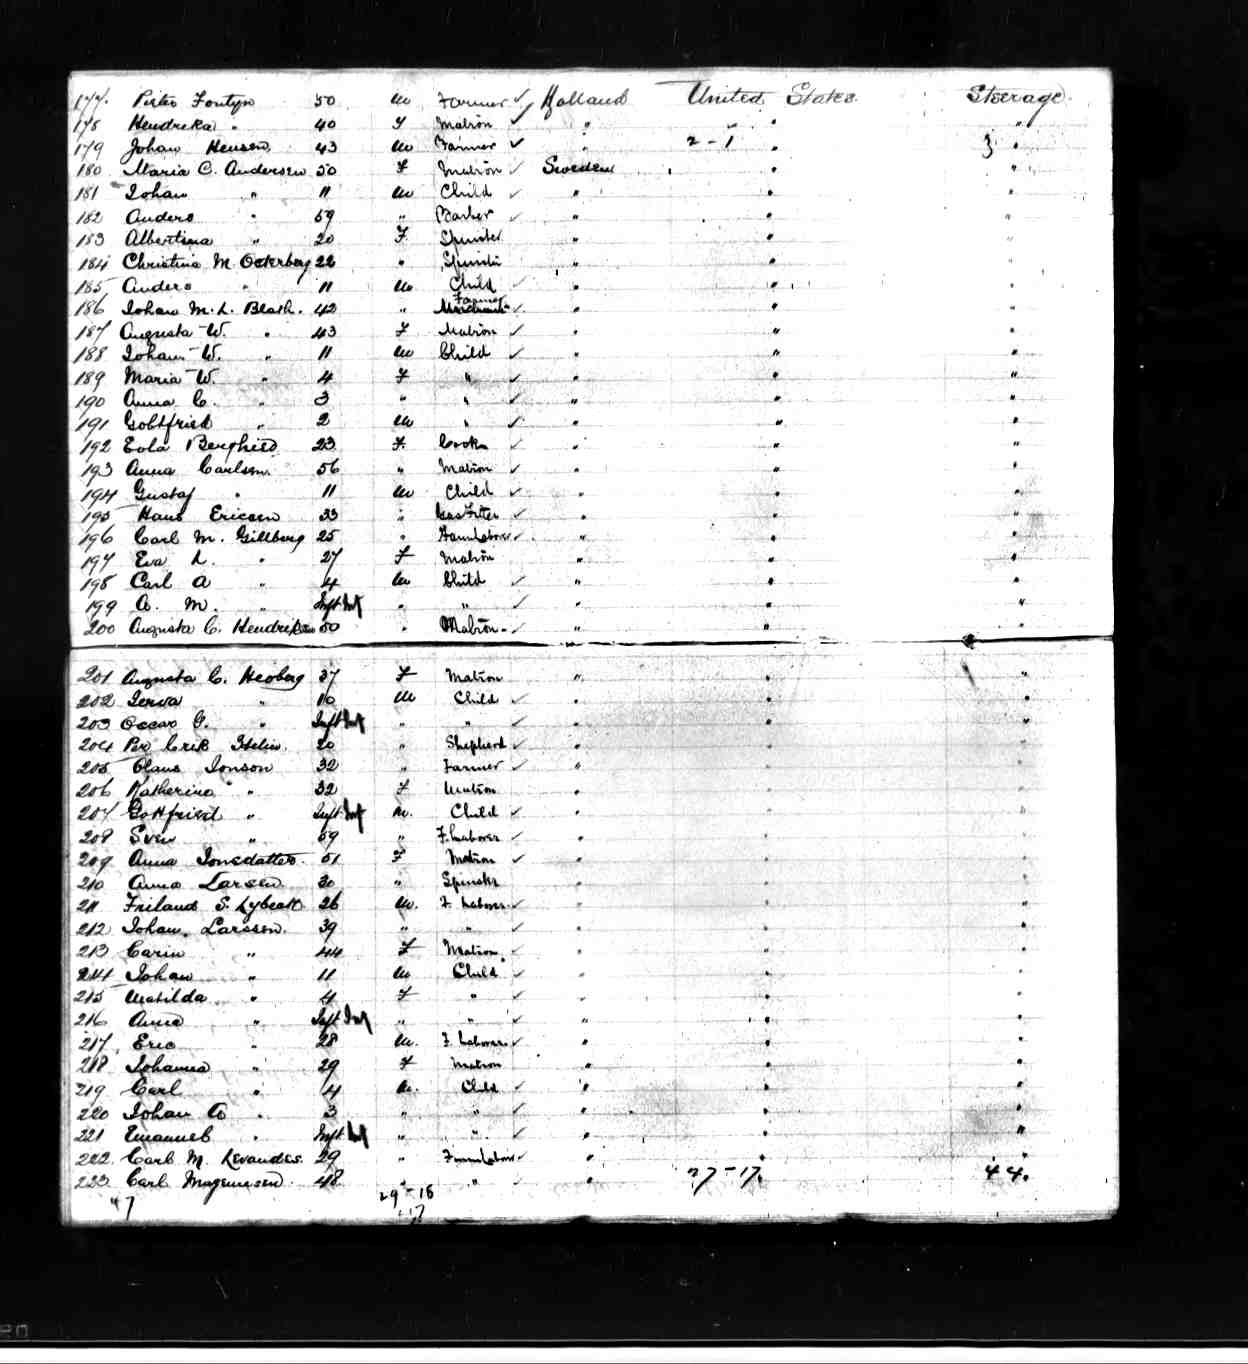 177. Pieter Fontyn 50 M Farmer ✓ Holland United States Steerage
178 Hendreka " 40 F Matron ✓ " " "
179 Johan Hensen 43 M Farmer ✓ " 2-1 " 3 "
180 Maria C. Andersen 50 F Matron ✓ Sweden " "
181 Johan " 11 M Child ✓ " " "
182 Anders " 59 " ✓ " " "
183 Albertina " 20 F. Spinster " " "
184 Christina M. Ockerberg 22 " Spinster " " "
185 Anders " 11 M Child ✓ " " "
186 Johan M. L. Blath. 42 " Farmer ✓ " " "
187 Augusta W. " 43 F Matron ✓ " " "
188 Johan W. " 11 M Child ✓ " " "
189 Maria W. " 4 F " ✓ " " "
190 Anna C. " 3 " " ✓ " " "
191 Gottfried " 2 M " ✓ " " "
192 23 F. Cook ✓ " " "
193 Anna Carlson. 56 " Matron ✓ " " "
194 Gustaf " 11 M Child ✓ " " "
195 Hans Ericsen 33 " Gas Fitter ✓ " " "
196 Carl M. Gillberg 25 " Farm Labor ✓ " " "
197 Eva L. " 27 F Matron " " "
198 Carl A " 4 M Child ✓ " " "
199 A. M. " Inft Inf " " ✓ " " "
200 Augusta C. Hendriksen 50 " Matron. ✓ " " "
201 Augusta C. Heoberg 37 F Matron " " "
202 " 10 M Child ✓ " " "
203 Occar G. " Inft Inf " " ✓ " " "
204 Per Erik 20 " Shepherd ✓ " " "
205 Claus Jonson 32 " Farmer ✓ " " "
206 Katherina " 32 F Matron " " "
207 Gottfried " Inft Inf M. Child ✓ " " "
208 Sven " 59 " F. Laborer ✓ " " "
209 Anna Jonsdatter. 51 F Matron ✓ " " "
210 Anna Larsen 30 " Spinster " " "
211 Friland S. Lybeatt 26 M. F. Laborer. ✓ " " "
212 Johan. Larssen. 39 " " ✓ " " "
213 Carin " 44 F Matron. ✓ " " "
214 Johan " 11 M Child ✓ " " "
215 Matilda " 4 F " ✓ " " "
216 Anna " Inft Inf " " ✓ " " "
217 Eric " 28 M. F. Laborer ✓ " " "
218 Johanna " 29 F Matron " " "
219 Carl " 4 M. Child ✓ " " "
220 Johan A " 3 " " ✓ " " "
221 Emanuel " Inft Inf " " ✓ " " "
222. Carl M. Levandes. 29 " Farm Labor ✓ " " "
223. Carl Magnussen. 48 " " ✓ " 27-17. 44.
47 29-18
17